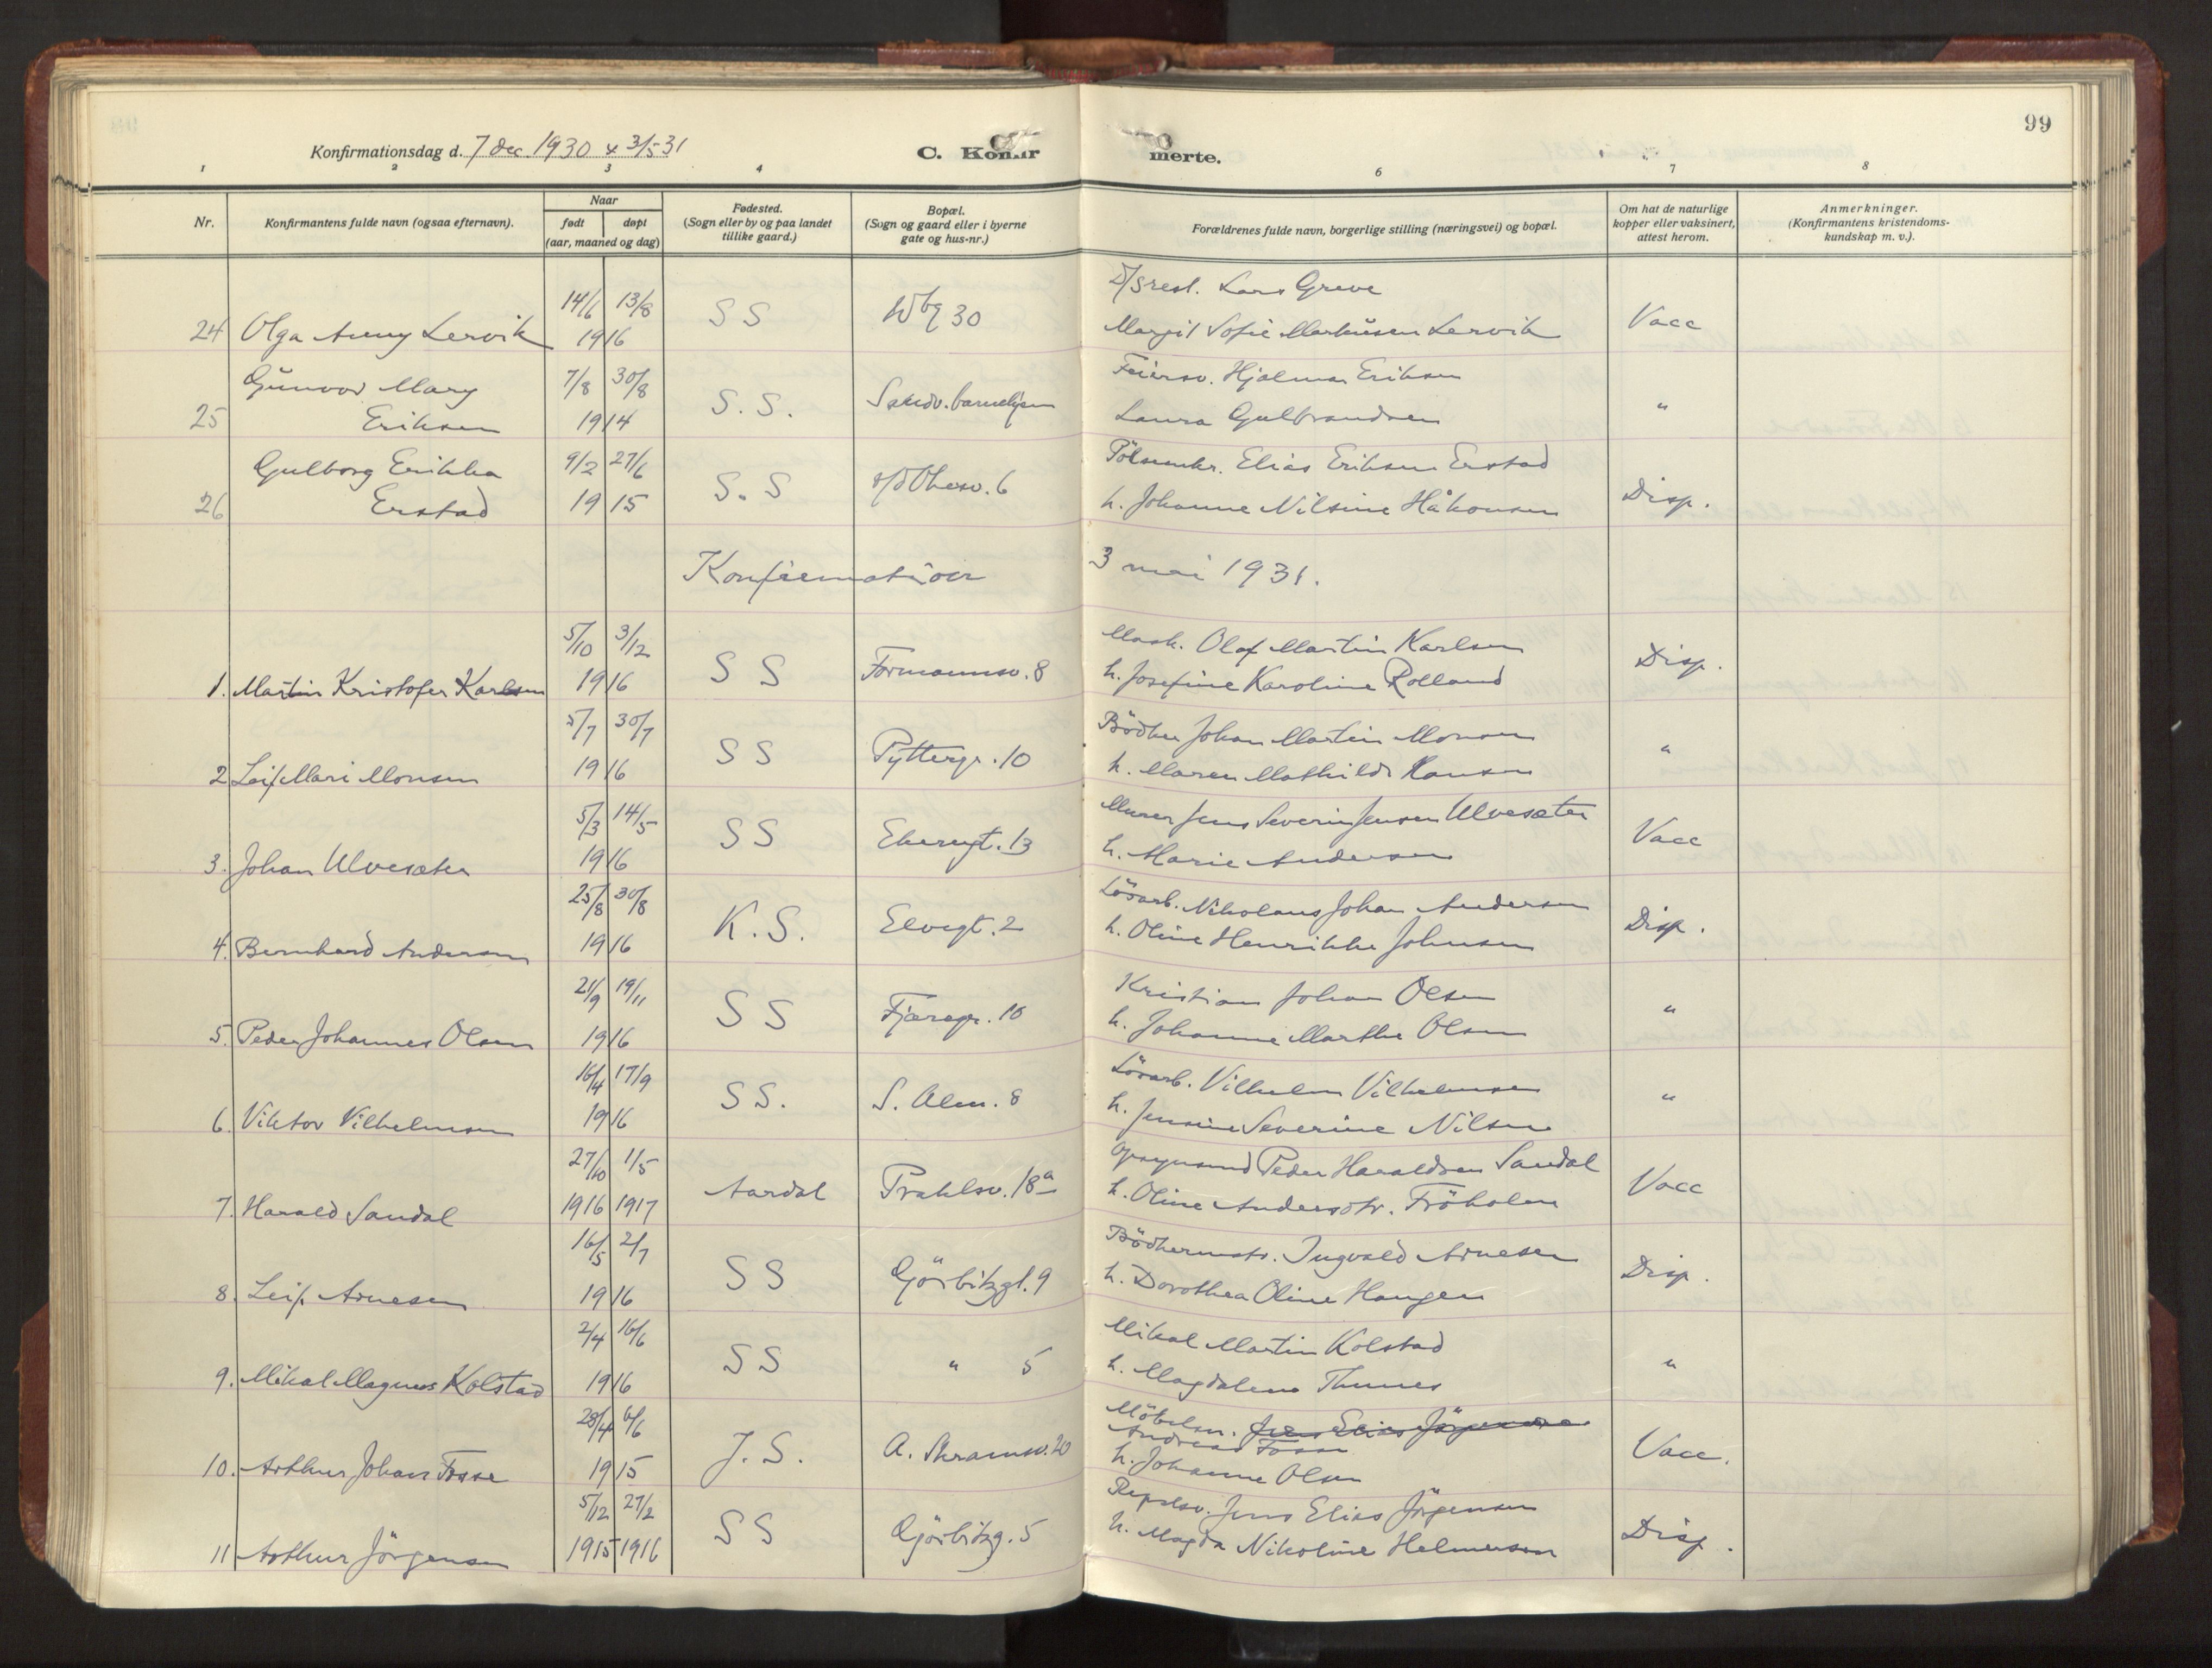 99
Konfirmationsdag d. 7 dec. 1930 & 3/5 31
C. Konfir merte.
1 2 3 4 6 7 8
Nr.
Konfirmantens fulde navn (ogsaa efternavn).
Naar
født døpt
(aar, maaned og dag)
Fødested.
(Sogn eller by og paa landet
tillike gaard.)
Bopæl.
(Sogn og gaard eller i byerne
gate og hus-nr.)
Forældrenes fulde navn, borgerlige stilling (næringsvei) og bopæl.
Om hat de naturlige
kopper eller vaksinert,
attest herom.
Anmerkninger.
(Konfirmantens kristendoms-
kundskap m. v.).
14/6 13/8 Lars Greve
24 Olga Lervik 1916 SS 30 Margit Sofie Markusen Lervik Vacc
Gunvor Mary 7/8 30/8 Hjalmar Eriksen
25 Eriksen 1914 S.S. Laura Gulbrandsen "
Gulborg Erikka 9/2 27/6 Elias Eriksen Erstad
26 Erstad 1915 S.S 6 h. Johanne Nilsine Håkonsen Disp.
Konfirmation 3 mai 1931.
5/10 3/12 Mask. Olaf Martin Karlsen
1. Martin Kristofer Karlsen 1916 SS Formannsv. 8 h. Josefine Karoline Rolland Disp.
5/7 30/7 Bödker Johan Martin Monsen
2 Leif Mari Monsen 1916 SS Pyttergr. 10 h. Maren Mathilde Hansen "
5/3 14/5 Murer Jens Severin Jensen Ulvesæter
3. Johan Ulvesæter 1916 SS 13 h. Marie Andersen Vacc
25/8 30/8 Lösarb. Nikolaus Johan Andersen
4. Bernhard Andersen 1916 K.S. Elvegt. 2 h. Oline Henrikke Johnsen Disp.
21/9 19/11 Kristian Johan Olsen
5. Peder Johannes Olsen 1916 SS Fjæregr. 16 h. Johanne Marthe Olsen "
16/4 17/9 Lösarb. Vilhelm Vilhelmsen
6. Viktor Vilhelmsen 1916 SS. S. Alm. 8 h. Jensine Severine Nilsen "
27/10 1/5 Opsynsmand Peder Haraldsen Sandal
7. Harald Sandal 1916 1917 Aardal Prahlsv. 18a h. Oline Andersdtr. Fröholm Vacc
16/5 2/7 Bödkermstr. Ingvald Arnesen
8. Leif Arnesen 1916 SS Görbitzgt. 9 h. Dorothea Oline Haugen Disp.
2/4 16/6 Mikal Martin Kolstad
9. Mikal Magnus Kolstad 1916 SS " 5 h. Magdalene Thunes "
28/4 6/6 Möbelsn. Jens Elias Jörgensen
Andreas Fosse
10. Arthur Johan Fosse 1915 J.S. A. Skramsv. 20 h. Johanne Olsen Vacc.
5/12 27/2 Repslsv. Jens Elias Jörgensen
11 Arthur Jörgensen 1915 1916 SS Görbitzg. 5 h. Magda Nikoline Helmersen Disp.